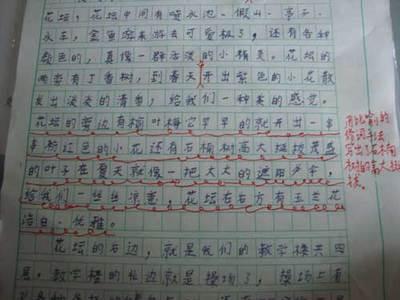 花坛，花坛中间有喷水池、假山、亭子、
水车，金鱼游来游去可爱极了，还有各种
颜色的，真像一群活泼的小精灵。花坛的
两旁有丁香树，到春天开出紫色的小花散
发出淡淡的清香，给我们一种美的感觉。
花坛的旁边有榆叶梅它早早的就开出一串
串粉红色的小花还有石楠树高大挺拔茂盛
的叶子在夏天就像一把大大的遮阳伞，
给我们一丝丝凉意，花坛右右方有玉兰花
洁白、优雅。
花坛的右边，就是我们的教学楼共四
层，教学楼的北边就是操场了，操场上有
用比喻的
修辞手法
写出了石楠
树的高大挺
拔。